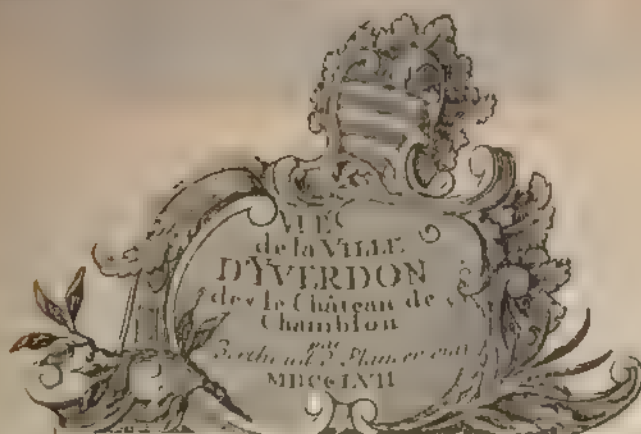 VUE
de la VILLE
D'YVERDON
des le Château de
Chamblon
par
MDCCLXII